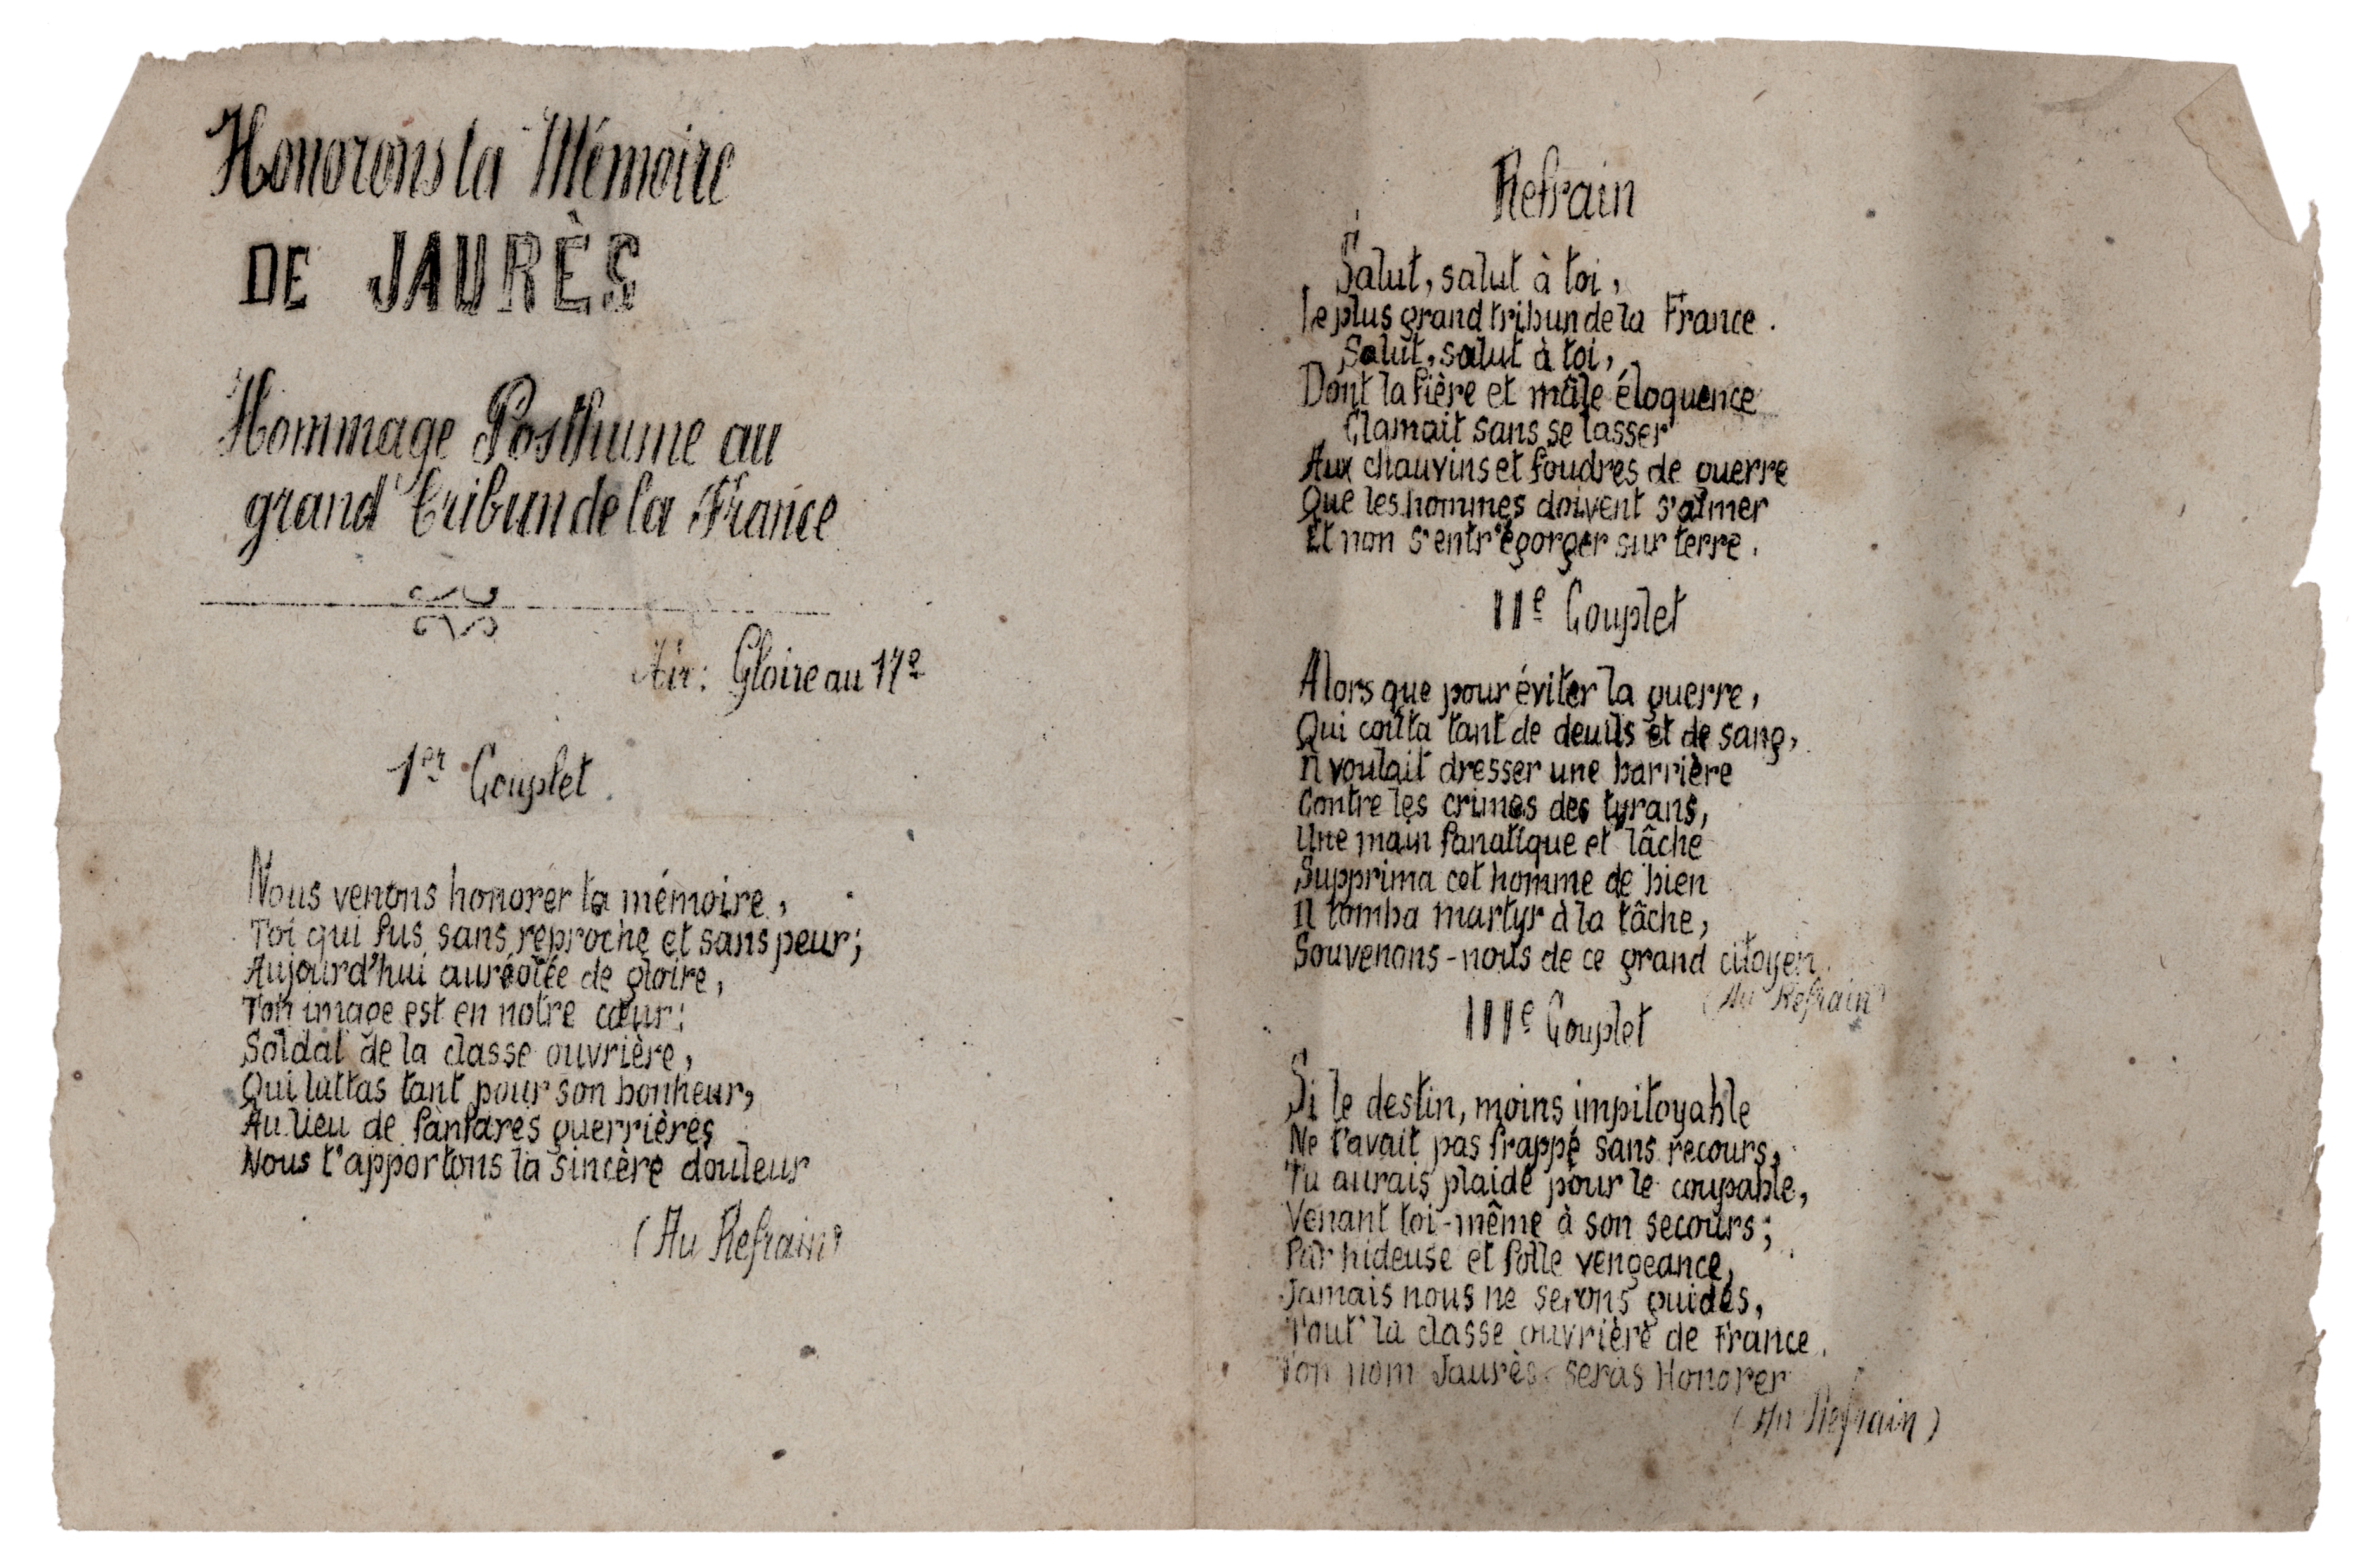 Honorons la Mémoire
DE JAURÈS
Hommage Posthume au
grand tribun de la France
Air : Gloire au 17e
1er Couplet.
Nous venons honorer ta mémoire,
Toi qui fus sans reproche et sans peur;
Aujourd'hui auréolée de gloire,
Ton image est en notre cœur;
Soldat de la classe ouvrière,
Qui luttas tant pour son bonheur,
Au lieu de fanfares guerrières
Nous t'apportons la sincère douleur
(Au Refrain)
Refrain
Salut, salut à toi,
Le plus grand tribun de la France.
Salut, salut à toi,
Dont la fière et mâle éloquence
Clamait sans se lasser
Aux chauvins et foudres de guerre
Que les hommes doivent s'aimer
Et non s'entr'égorger sur terre.
IIe Couplet
Alors que pour éviter la guerre,
Qui coûta tant de deuils et de sang,
Il voulait dresser une barrière
Contre les crimes des tyrans,
Une main fanatique et lâche
Supprima cet homme de bien
Il tomba martyr à la tâche,
Souvenons-nous de ce grand citoyen.
(Au Refrain)
IIIe Couplet
Si le destin, moins impitoyable
Ne t'avait pas frappé sans recours,
Tu aurais plaidé pour le coupable,
Venant toi-même à son secours;
Par hideuse et folle vengeance,
Jamais nous ne serons guidés,
Tout' la classe ouvrière de France.
Ton nom Jaurès seras Honorer
(Au Refrain)